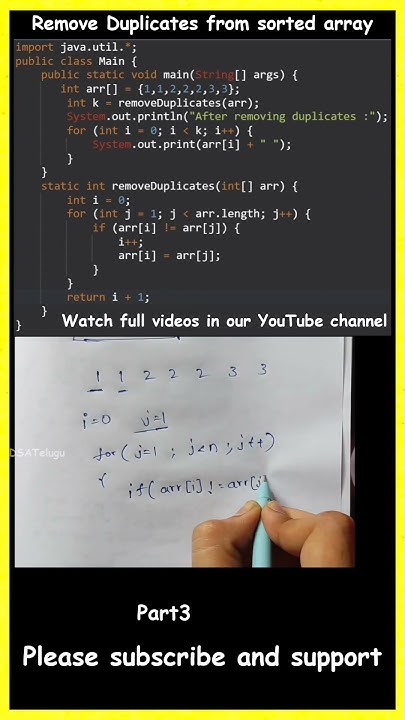 Remove Duplicates from sorted array
import java.util.*;
public class Main {
public static void main(String[] args) {
int arr[] = {1,1,2,2,2,3,3};
int k = removeDuplicates(arr);
System.out.println("After removing duplicates :");
for (int i = 0; i < k; i++) {
System.out.print(arr[i] + " ");
}
}
static int removeDuplicates(int[] arr) {
int i = 0;
for (int j = 1; j < arr.length; j++) {
if (arr[i] != arr[j]) {
i++;
arr[i] = arr[j];
}
}
return i + 1;
}
}
Watch full videos in our YouTube channel
1 1 2 2 2 3 3
i=0 j=1
DSATelugu
for (j=1 ; j<n ; j++)
{
if (arr[i] != arr[j]
Part3
Please subscribe and support